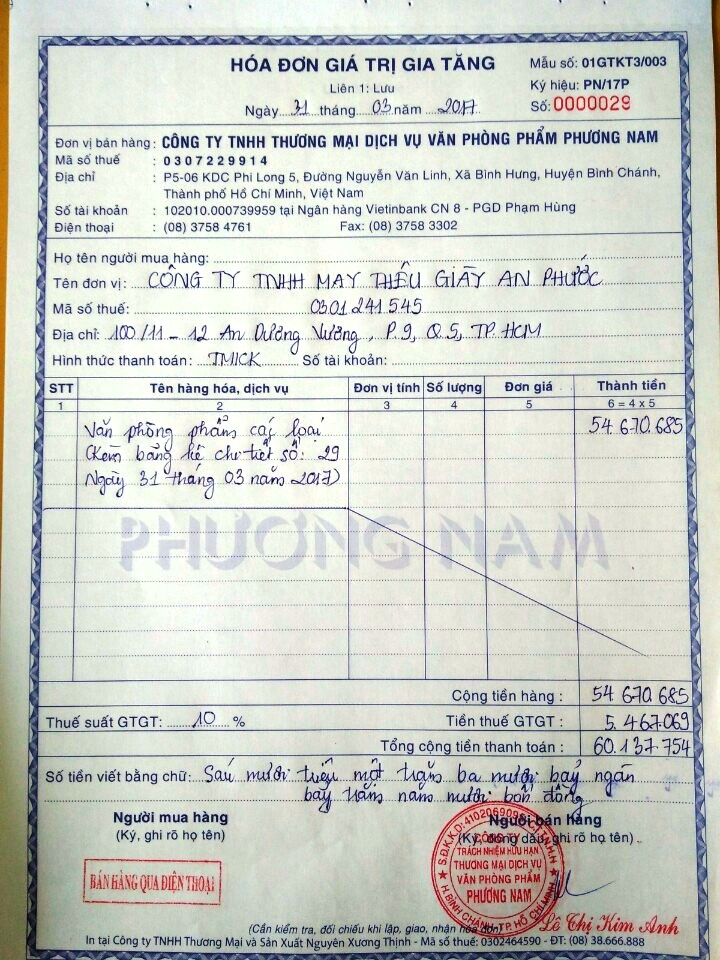 HÓA ĐƠN GIÁ TRỊ GIA TĂNG
Mẫu số: 01GTKT3/003
Liên 1: Lưu
Ký hiệu: PN/17P
Ngày 31 tháng 03 năm 2017
Số: 0000029
Đơn vị bán hàng : CÔNG TY TNHH THƯƠNG MẠI DỊCH VỤ VĂN PHÒNG PHẨM PHƯƠNG NAM
Mã số thuế : 0307229914
Địa chỉ : P5-06 KDC Phi Long 5, Đường Nguyễn Văn Linh, Xã Bình Hưng, Huyện Bình Chánh,
Thành phố Hồ Chí Minh, Việt Nam
Số tài khoản : 102010.000739959 tại Ngân hàng Vietinbank CN 8 - PGD Phạm Hùng
Điện thoại : (08) 3758 4761 Fax: (08) 3758 3302
Họ tên người mua hàng:
Tên đơn vị: CÔNG TY TNHH MAY THÊU GIÀY AN PHƯỚC
Mã số thuế: 0301241545
Địa chỉ: 100/11 - 12 An Dương Vương, P.9, Q.5, TP.HCM
Hình thức thanh toán: TM/CK Số tài khoản:
STT Tên hàng hóa, dịch vụ Đơn vị tính Số lượng Đơn giá Thành tiền
1 2 3 4 5 6 = 4 x 5
Văn phòng phẩm các loại 54.670.685
(Kèm bảng kê chi tiết số: 29
Ngày 31 tháng 03 năm 2017)
PHƯƠNG NAM
Cộng tiền hàng : 54.670.685
Thuế suất GTGT: 10 % Tiền thuế GTGT : 5.467.069
Tổng cộng tiền thanh toán : 60.137.754
Số tiền viết bằng chữ: Sáu mươi triệu một trăm ba mươi bảy ngàn
bảy trăm năm mươi bốn đồng
Người mua hàng Người bán hàng
(Ký, ghi rõ họ tên) (Ký, đóng dấu, ghi rõ họ tên)
BÁN HÀNG QUA ĐIỆN THOẠI
S.Đ.K.K.D: 4102069098 - C.T.T.N.H.H
CÔNG TY
TRÁCH NHIỆM HỮU HẠN
THƯƠNG MẠI DỊCH VỤ
VĂN PHÒNG PHẨM
PHƯƠNG NAM
H. BÌNH CHÁNH - TP. HỒ CHÍ MINH
Lê Thị Kim Anh
(Cần kiểm tra, đối chiếu khi lập, giao, nhận hóa đơn)
In tại Công ty TNHH Thương Mại và Sản Xuất Nguyên Xương Thịnh - Mã số thuế: 0302464590 - ĐT: (08) 38.666.888